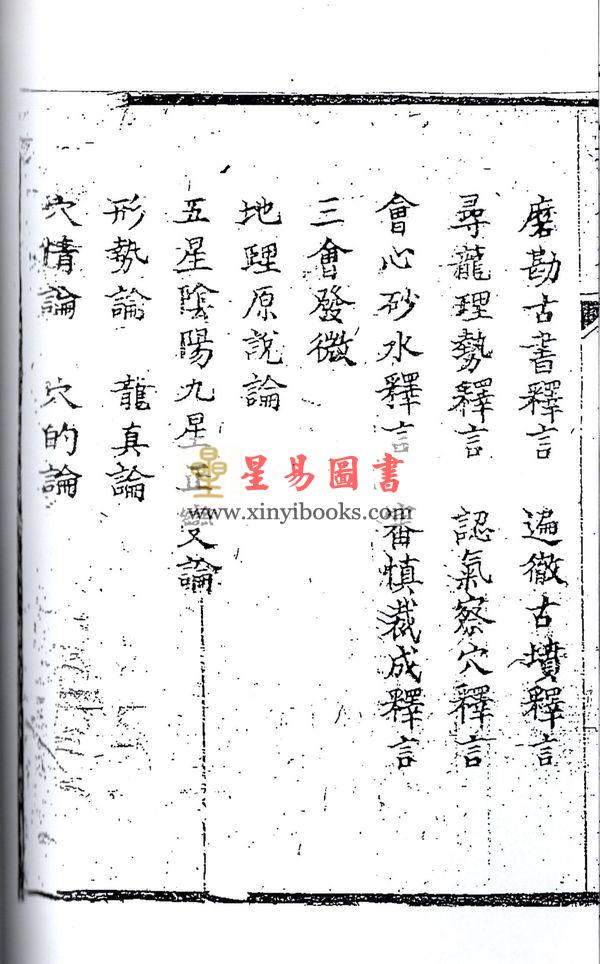 磨勘古書釋言　遍徹古墳釋言
尋龍理勢釋言　認氣察穴釋言
會心砂水釋言　審慎裁成釋言
三會發微
地理原說論
五星陰陽九星正變又論
形勢論　龍真論
穴情論　穴的論
星易圖書
www.xinyibooks.com